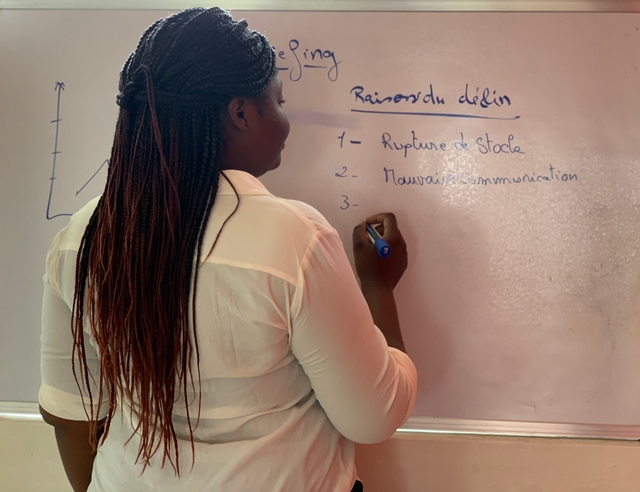 Raison du déclin
1- Rupture de Stock
2- Mauvaise communication
3-